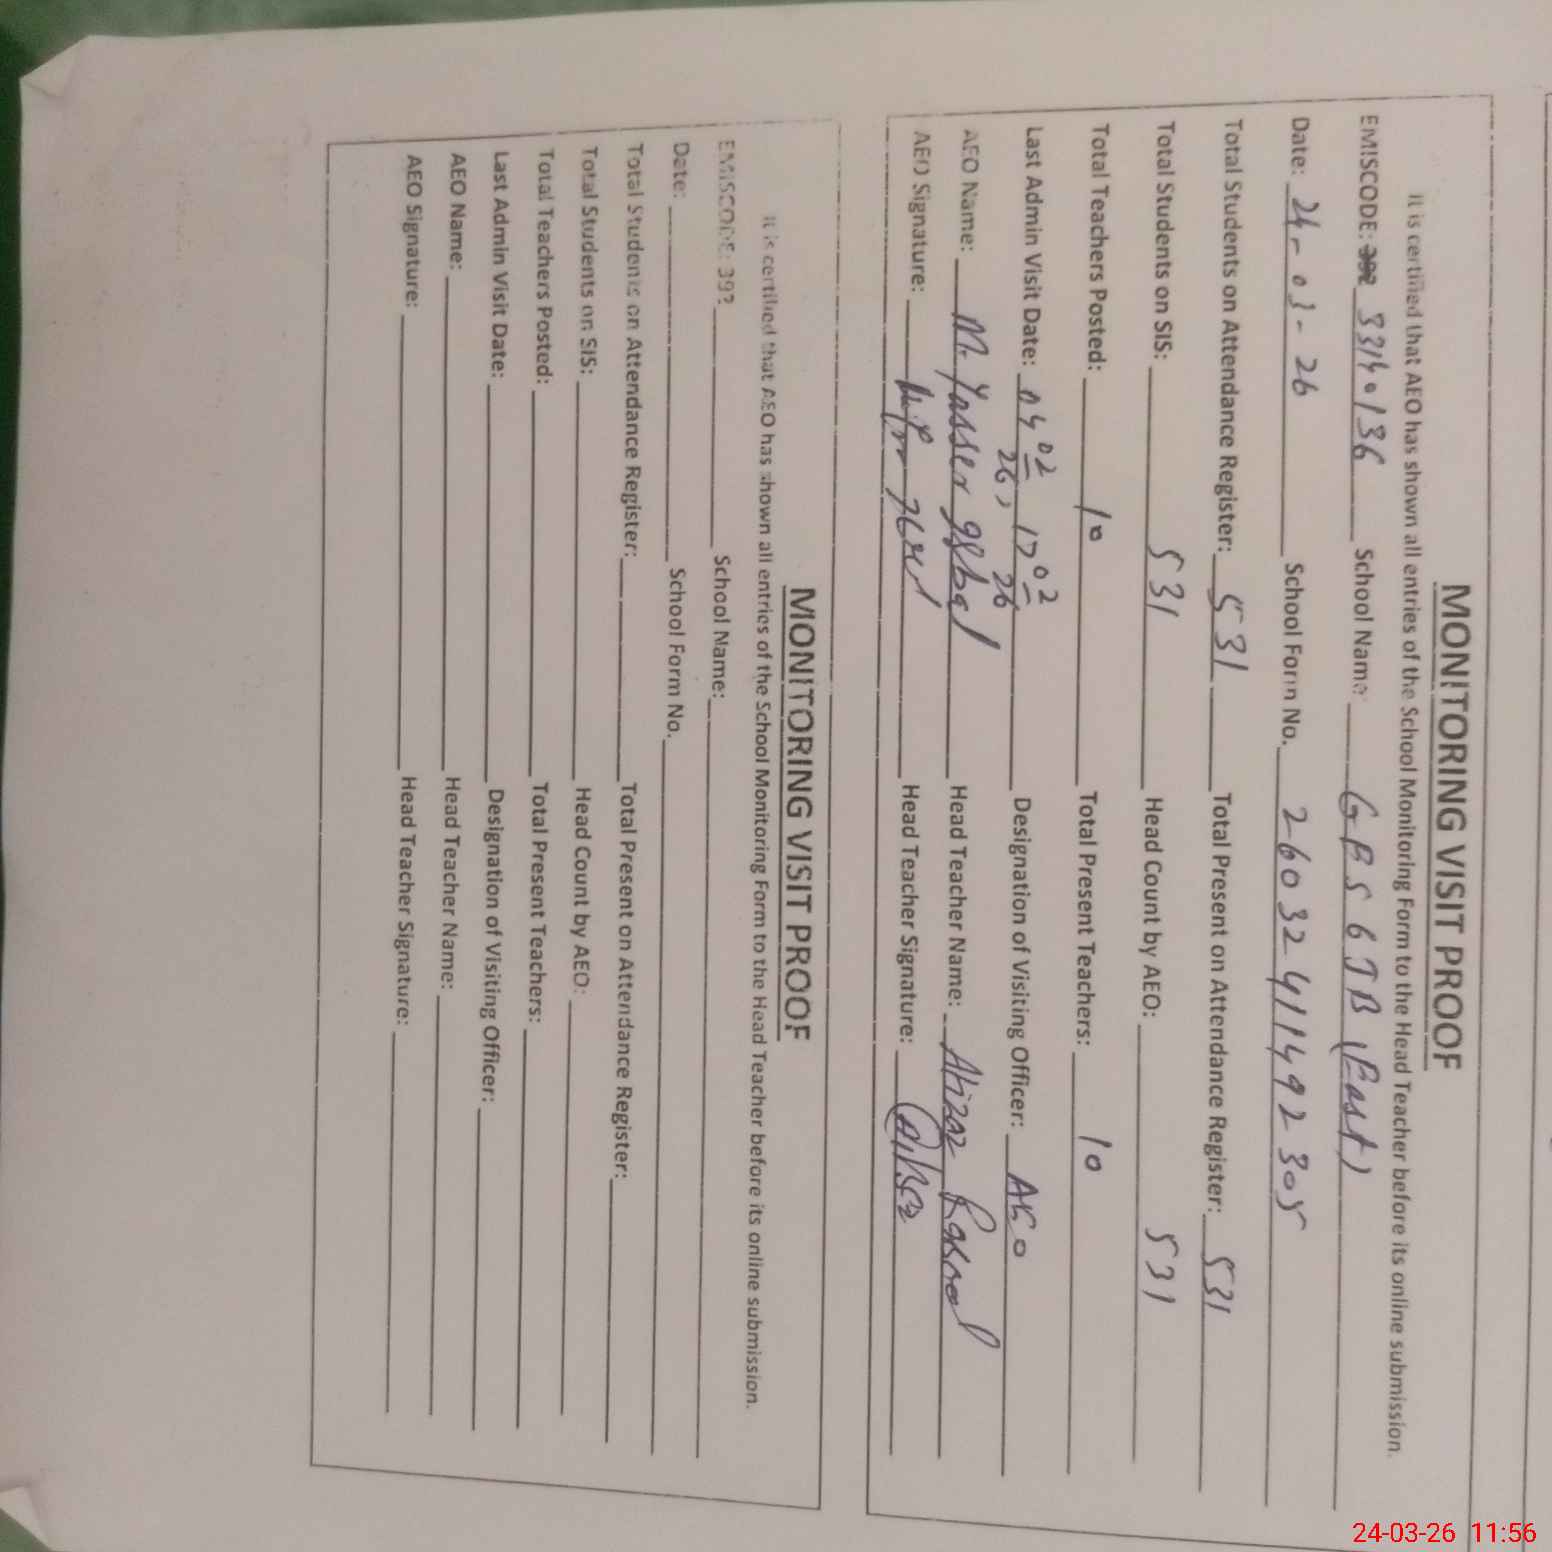 MONITORING VISIT PROOF
It is certified that AEO has shown all entries of the School Monitoring Form to the Head Teacher before its online submission.
EMISCODE: 392 33140136 School Name: GBS 6JB (East)
Date: 24-03-26 School Form No. 26032411492305
Total Students on Attendance Register: 531 Total Present on Attendance Register: 531
Total Students on SIS: 531 Head Count by AEO: 531
Total Teachers Posted: 10 Total Present Teachers: 10
Last Admin Visit Date: 04 02 26, 17 02 26 Designation of Visiting Officer: AEO
AEO Name: M. Yasser Iqbal Head Teacher Name: Rasool
AEO Signature: Head Teacher Signature:
MONITORING VISIT PROOF
It is certified that AEO has shown all entries of the School Monitoring Form to the Head Teacher before its online submission.
EMISCODE: 392 School Name:
Date: School Form No.
Total Students on Attendance Register: Total Present on Attendance Register:
Total Students on SIS: Head Count by AEO:
Total Teachers Posted: Total Present Teachers:
Last Admin Visit Date: Designation of Visiting Officer:
AEO Name: Head Teacher Name:
AEO Signature: Head Teacher Signature:
24-03-26 11:56